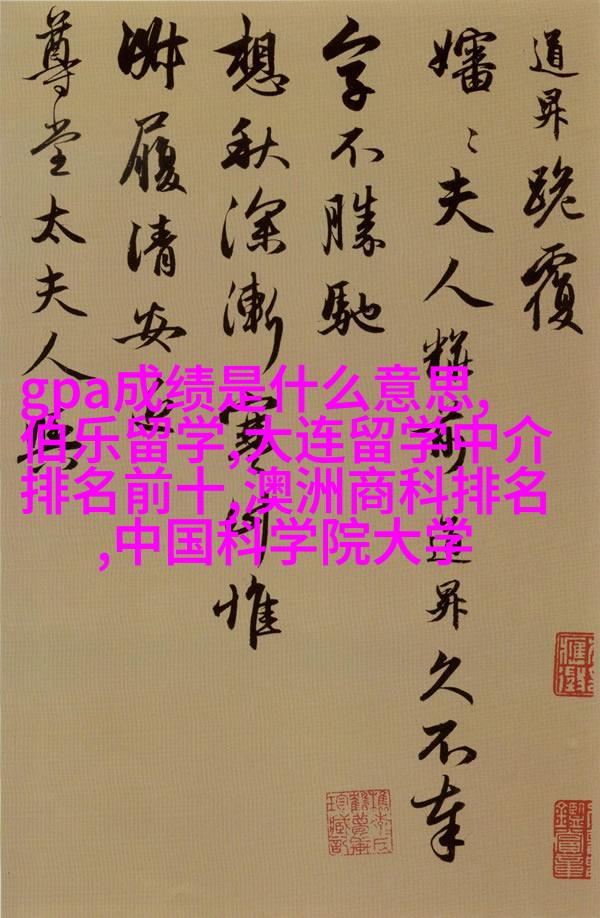 道昇跪覆
嬸〻夫人粧前道昇久不奉
字不勝馳
想秋深漸寒計惟
淑履清安近
尊堂太夫人與
gpa成绩是什么意思,
伯乐留学,大连留学中介
排名前十,澳洲商科排名
,中国科学院大学